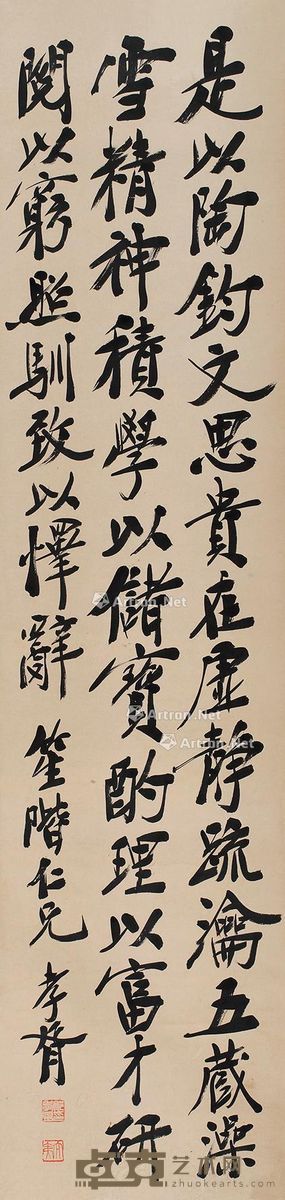 是以陶鈞文思貴在虛靜疏瀹五藏澡
雪精神積學以儲寶酌理以富才研
閱以窮照馴致以懌辭 笙階仁兄 孝胥
Artron.Net
卓克艺术网
www.zhuokearts.com